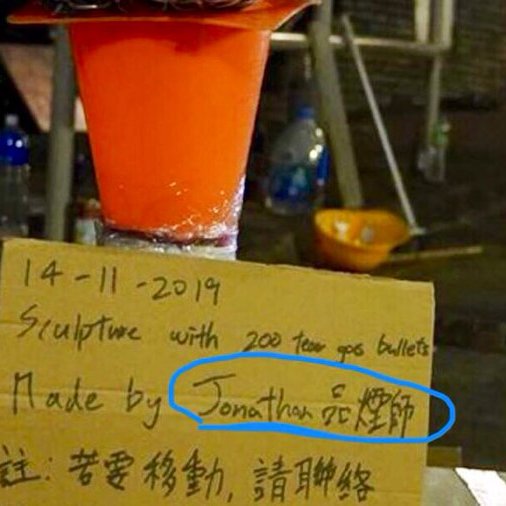 14-11-2019
Sculpture with 200 tear gas bullets
Made by Jonathan 品煙師
註: 若要移動, 請聯絡